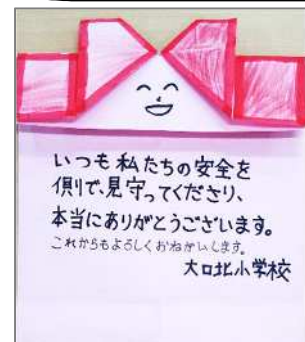 いつも私たちの安全を
側で、見守ってくださり、
本当にありがとうございます。
これからもよろしくおねがいします。
大口北小学校